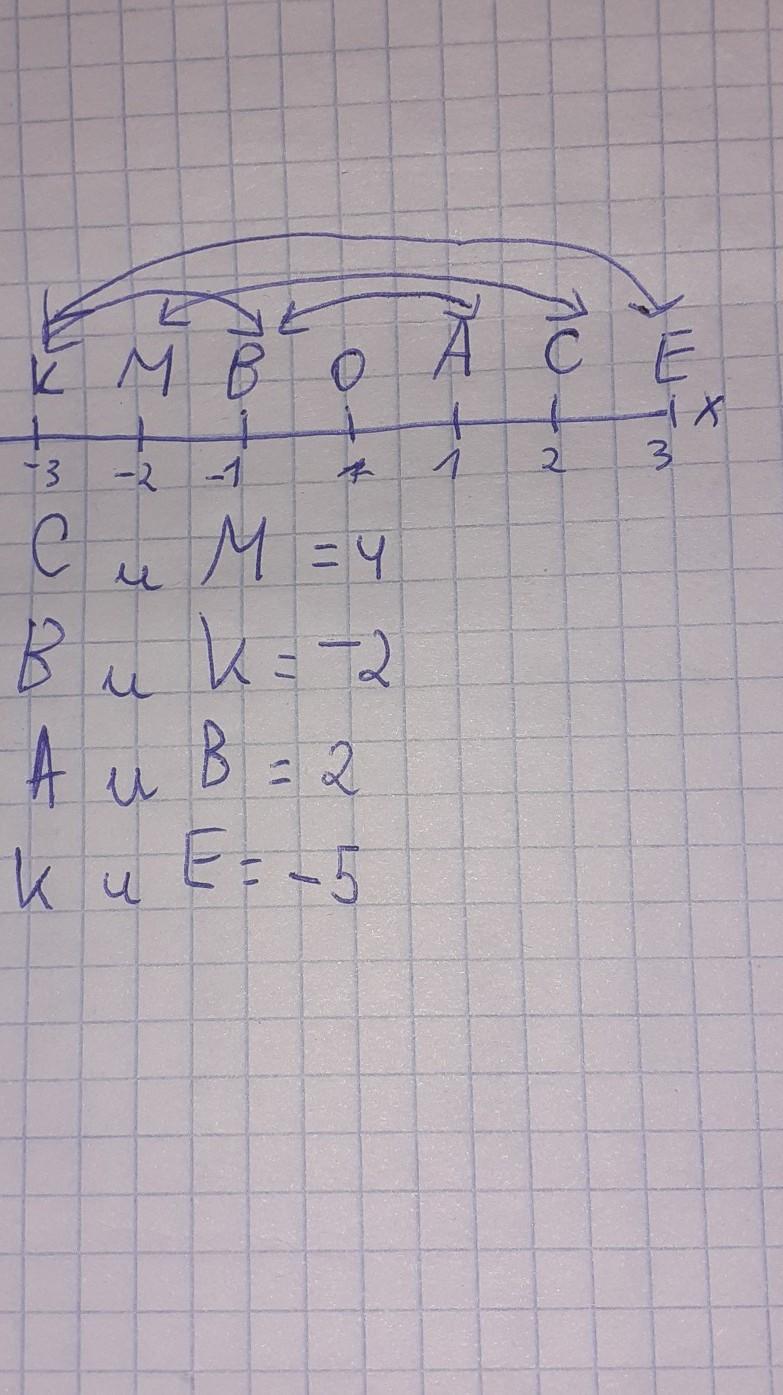 К М В О А С Е
-3 -2 -1 1 2 3 х
С и М = 4
В и К = -2
А и В = 2
К и Е = -5